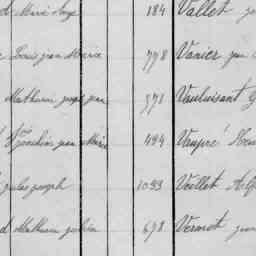 d Marie Ange 184 Vallet
Louis jean Marie 798 Vanier jean
Mathurin joseph jean 571 Vauluisant
Jph joachim jean Marie 494 Vaupré
jules joseph 1093 Veillet Alf
d Mathurin julien 678 Vermet